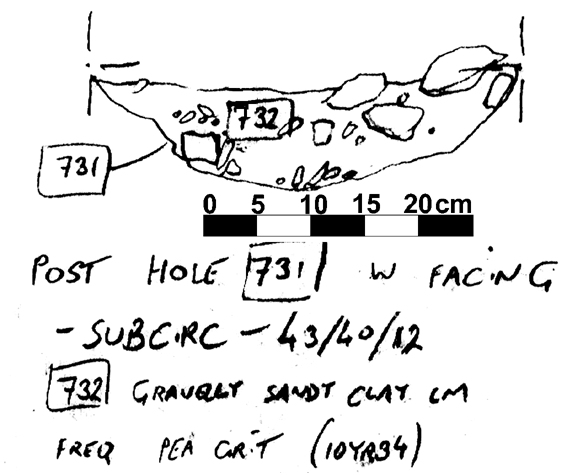 732
731
0 5 10 15 20cm
POST HOLE 731 W FACING
- SUBCIRC - 43/40/12
732 GRAVELLY SANDY CLAY LM
FREQ PEA GRIT (10YR34)